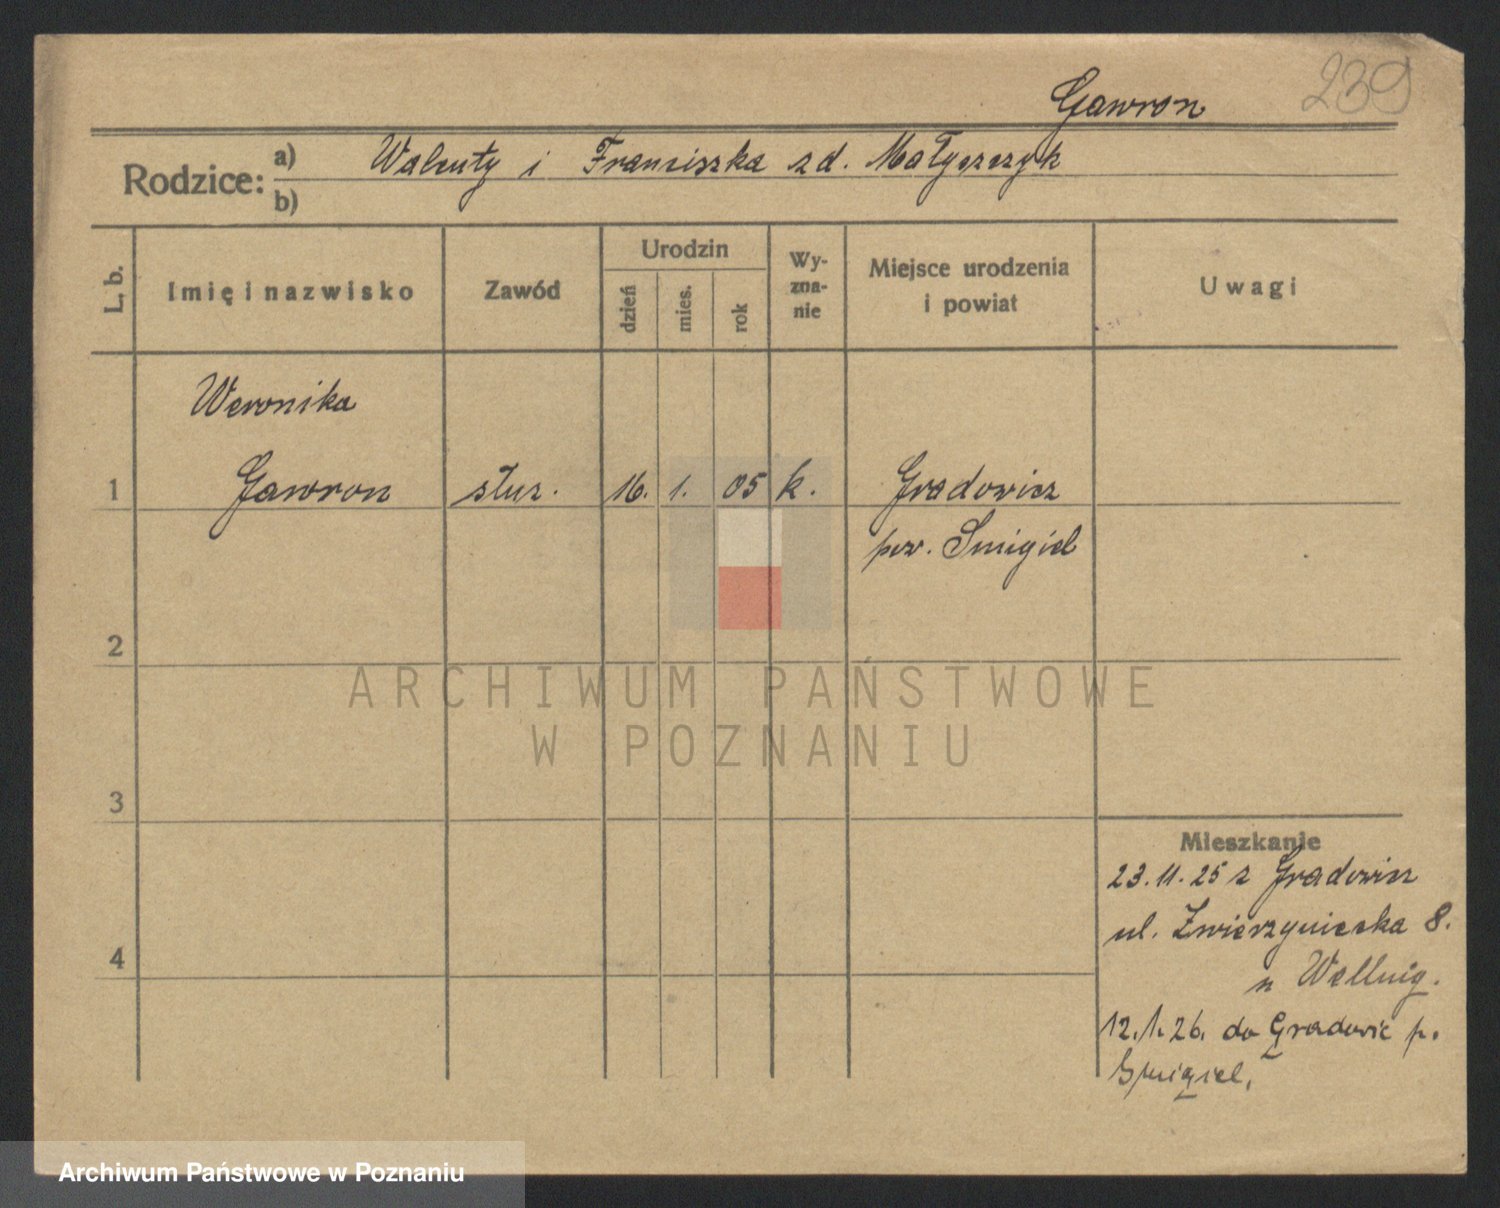 239
Gawron
Rodzice: a) Walenty i Franciszka z d. Małyszczyk
b)
L. b. Imię i nazwisko Zawód Urodzin dzień mies. rok Wy-zna-nie Miejsce urodzenia i powiat Uwagi
Weronika
1 Gawron słuz. 16. 1. 05 k. Gradowicz
pow. Smigiel
2
ARCHIWUM PAŃSTWOWE
W POZNANIU
3
Mieszkanie
23.11.25 z Gradowicz
ul. Zwierzyniecka 8.
4
u Wellnig.
12.1.26. do Gradowic p.
Smigiel.
Archiwum Państwowe w Poznaniu